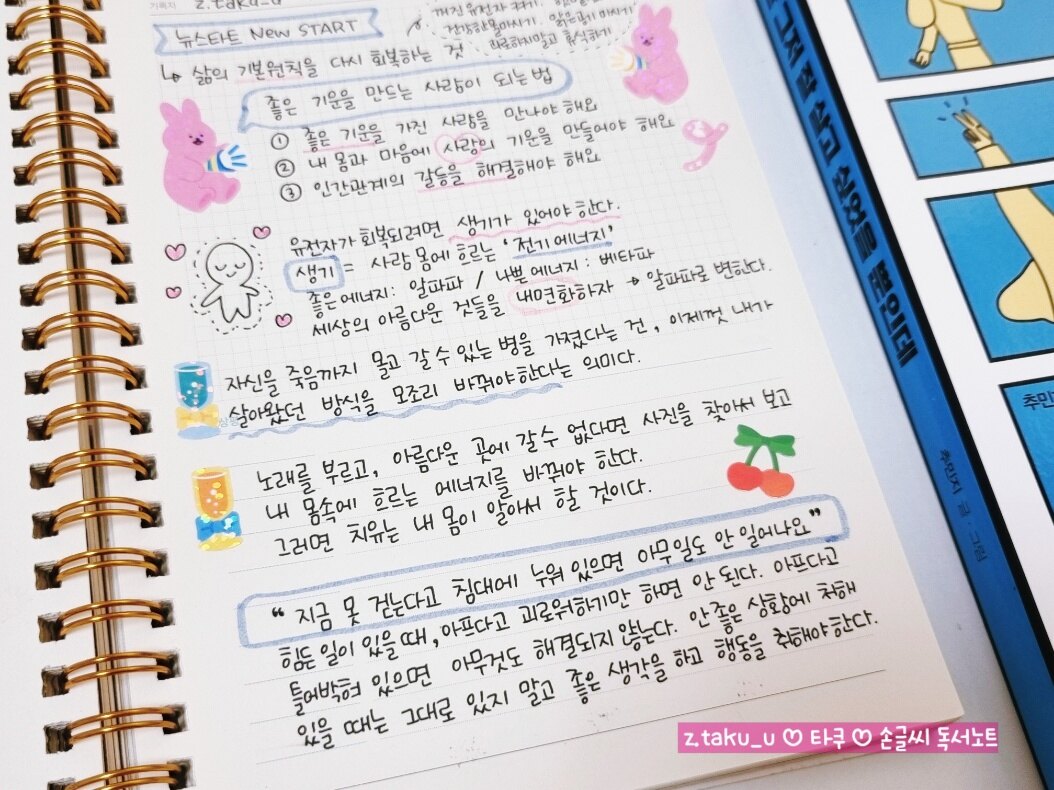 z.taku_u
뉴스타트 New START
꺼진 유전자 켜기,
건강한물마시기, 맑은공기 마시기
과로하지말고 휴식하기
↳ 삶의 기본원칙을 다시 회복하는 것
좋은 기운을 만드는 사람이 되는 법
① 좋은 기운을 가진 사람을 만나야 해요
② 내 몸과 마음에 사랑의 기운을 만들어야 해요
③ 인간관계의 갈등을 해결해야 해요
유전자가 회복되려면 생기가 있어야 한다.
생기 = 사람 몸에 흐르는 '전기에너지'
좋은에너지: 알파파 / 나쁜에너지: 베타파
세상의 아름다운 것들을 내면화하자 → 알파파로 변한다.
자신을 죽음까지 몰고 갈 수 있는 병을 가졌다는 건, 이제껏 내가
살아왔던 방식을 모조리 바꿔야한다는 의미다.
노래를 부르고, 아름다운 곳에 갈 수 없다면 사진을 찾아서 보고
내 몸속에 흐르는 에너지를 바꿔야 한다.
그러면 치유는 내 몸이 알아서 할 것이다.
“ 지금 못 걷는다고 침대에 누워 있으면 아무일도 안 일어나요”
힘든 일이 있을 때, 아프다고 괴로워하기만 하면 안 된다. 아프다고
틀어박혀 있으면 아무것도 해결되지 않는다. 안 좋은 상황에 처해
있을 때는 그대로 있지 말고 좋은 생각을 하고 행동을 취해야한다.
그저 잘 살고 싶었을 뿐인데
추민지 글·그림
추민
z.taku_u ♡ 타쿠 ♡ 손글씨 독서노트